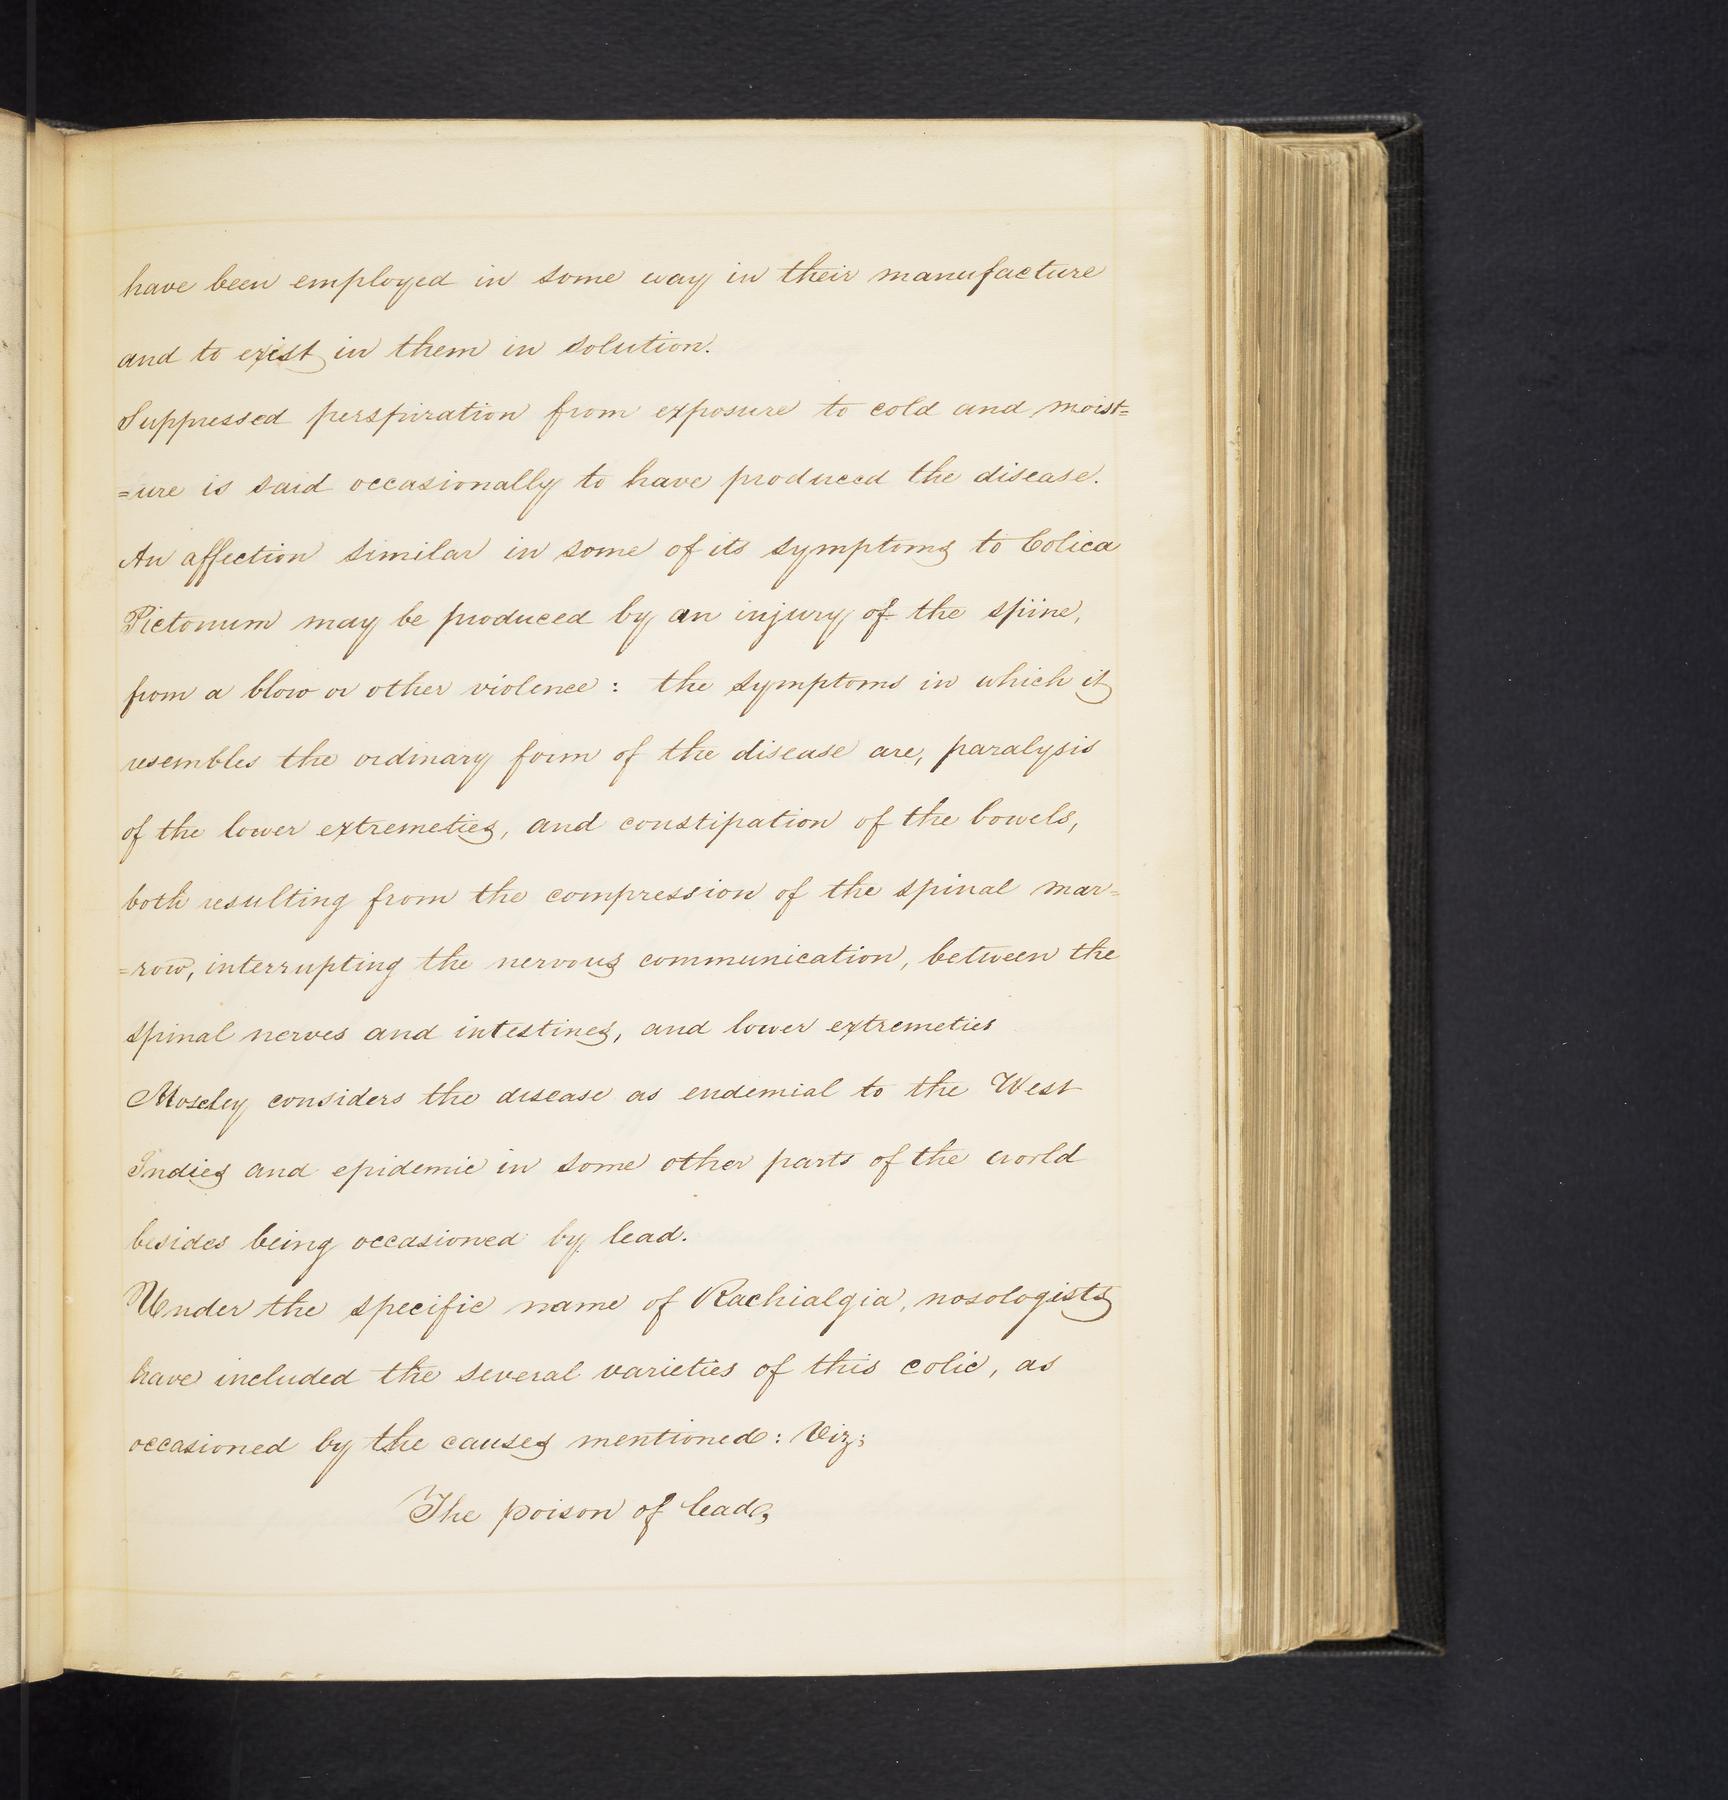 have been employed in some way in their manufacture
and to exist in them in solution.
Suppressed perspiration from exposure to cold and moist=
=ure is said occasionally to have produced the disease.
An affection similar in some of its symptoms to Colica
Pictonum may be produced by an injury of the spine,
from a blow or other violence: the symptoms in which it
resembles the ordinary form of the disease are, paralysis
of the lower extremeties, and constipation of the bowels,
both resulting from the compression of the spinal mar=
=row, interrupting the nervous communication, between the
spinal nerves and intestines, and lower extremeties
Moseley considers the disease as endemial to the West
Indies and epidemic in some other parts of the world
besides being occasioned by lead.
Under the specific name of Rachialgia, nosologists
have included the several varieties of this colic, as
occasioned by the causes mentioned: Viz;
The poison of lead,